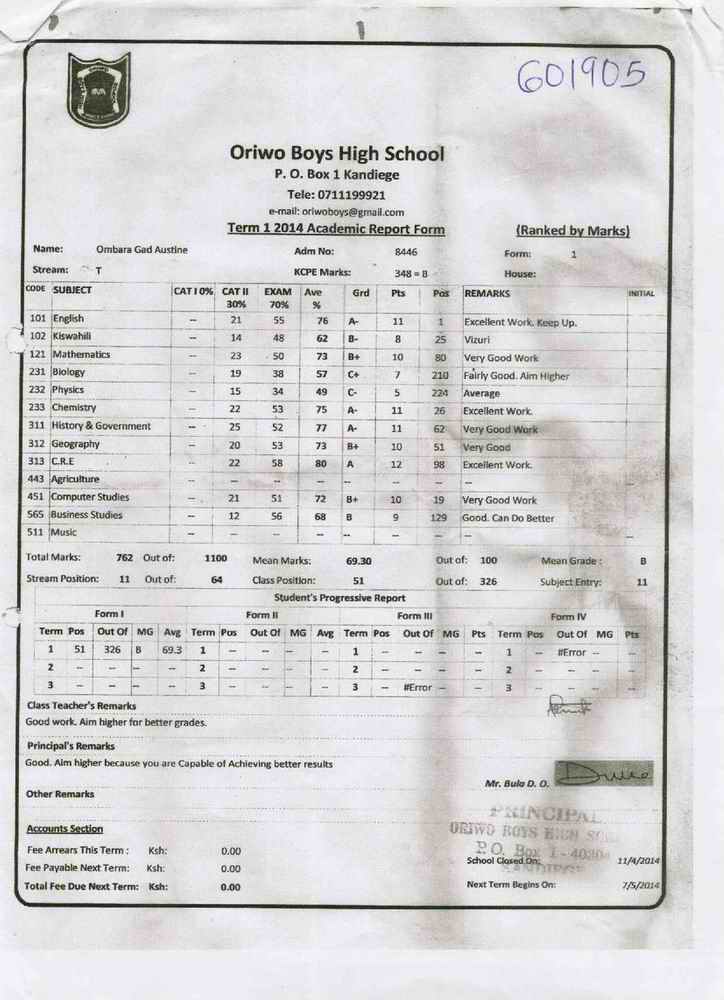 601905
Oriwo Boys High School
P. O. Box 1 Kandiege
Tele: 0711199921
e-mail: oriwoboys@gmail.com
Term 1 2014 Academic Report Form (Ranked by Marks)
Name: Ombara Gad Austine Adm No: 8446 Form: 1
Stream: T KCPE Marks: 348 = B House:
CODE SUBJECT CAT I 0% CAT II 30% EXAM 70% Ave % Grd Pts Pos REMARKS INITIAL
101 English -- 21 55 76 A- 11 1 Excellent Work. Keep Up.
102 Kiswahili -- 14 48 62 B- 8 25 Vizuri
121 Mathematics -- 23 50 73 B+ 10 80 Very Good Work
231 Biology -- 19 38 57 C+ 7 210 Fairly Good. Aim Higher
232 Physics -- 15 34 49 C- 5 224 Average
233 Chemistry -- 22 53 75 A- 11 26 Excellent Work.
311 History & Government -- 25 52 77 A- 11 62 Very Good Work
312 Geography -- 20 53 73 B+ 10 51 Very Good
313 C.R.E -- 22 58 80 A 12 98 Excellent Work.
443 Agriculture -- -- -- -- -- -- -- --
451 Computer Studies -- 21 51 72 B+ 10 19 Very Good Work
565 Business Studies -- 12 56 68 B 9 129 Good. Can Do Better
511 Music -- -- -- -- -- -- -- -- --
Total Marks: 762 Out of: 1100 Mean Marks: 69.30 Out of: 100 Mean Grade : B
Stream Position: 11 Out of: 64 Class Position: 51 Out of: 326 Subject Entry: 11
Student's Progressive Report
Form I Form II Form III Form IV
Term Pos Out Of MG Avg Term Pos Out Of MG Avg Term Pos Out Of MG Pts Term Pos Out Of MG Pts
1 51 326 B 69.3 1 -- -- -- -- 1 -- -- -- 1 -- #Error -- --
2 -- -- -- -- 2 -- -- -- -- 2 -- -- -- 2 -- -- -- --
3 -- -- -- -- 3 -- -- -- -- 3 -- #Error -- -- 3 -- -- -- --
Class Teacher's Remarks
Good work. Aim higher for better grades.
Principal's Remarks
Good. Aim higher because you are Capable of Achieving better results
Mr. Bula D. O.
Other Remarks
PRINCIPAL
ORIWO BOYS HIGH
P.O. Box 1 - 40304
KANDIEGE
Accounts Section
Fee Arrears This Term : Ksh: 0.00
School Closed On: 11/4/2014
Fee Payable Next Term: Ksh: 0.00
Total Fee Due Next Term: Ksh: 0.00 Next Term Begins On: 7/5/2014